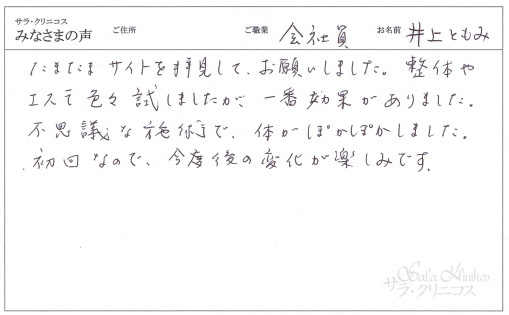 サラ・クリニコス
みなさまの声 ご住所 ご職業 会社員 お名前 井上ともみ
たまたまサイトを拝見して、お願いしました。整体や
エステ色々試しましたが、一番効果がありました。
不思議な施術で、体がぽかぽかしました。
初回なので、今度後の変化が楽しみです。
Sala Klinikos
サラ・クリニコス